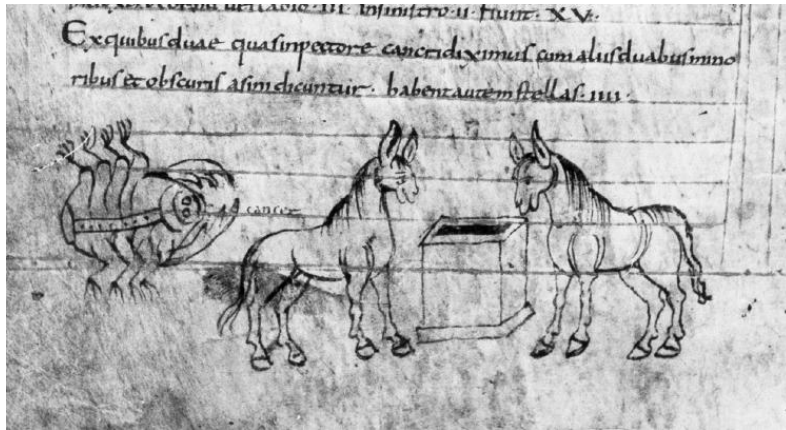 sinistro · II · fiunt · XV ·
Ex quibus duae quasi in pectore cancri diximus cum aliis duabus mino
ribus et obscuris asini dicuntur · habent autem stellas · IIII ·
cancer